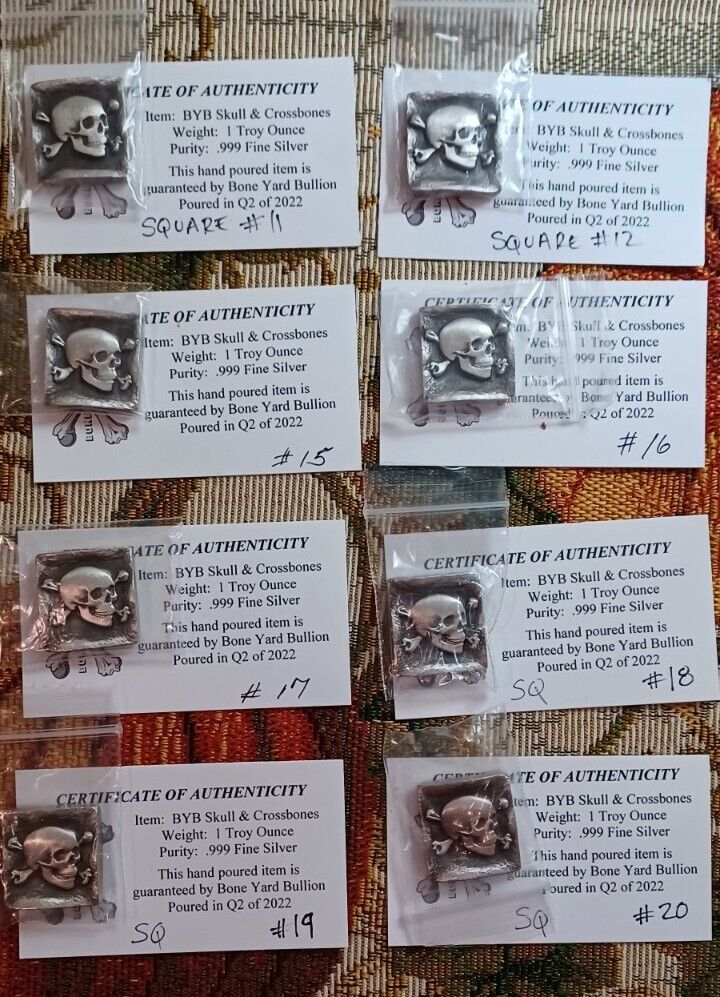 CATE OF AUTHENTICITY
Item: BYB Skull & Crossbones
Weight: 1 Troy Ounce
Purity: .999 Fine Silver
This hand poured item is
guaranteed by Bone Yard Bullion
Poured in Q2 of 2022
SQUARE #11
OF AUTHENTICITY
BYB Skull & Crossbones
Weight: 1 Troy Ounce
Purity: .999 Fine Silver
This hand poured item is
guaranteed by Bone Yard Bullion
Poured in Q2 of 2022
SQUARE #12
ATE OF AUTHENTICITY
Item: BYB Skull & Crossbones
Weight: 1 Troy Ounce
Purity: .999 Fine Silver
This hand poured item is
guaranteed by Bone Yard Bullion
Poured in Q2 of 2022
#15
CERTIFICATE OF AUTHENTICITY
BYB Skull & Crossbones
Weight: 1 Troy Ounce
Purity: .999 Fine Silver
This hand poured item is
guaranteed by Bone Yard Bullion
Poured in Q2 of 2022
#16
ATE OF AUTHENTICITY
Item: BYB Skull & Crossbones
Weight: 1 Troy Ounce
Purity: .999 Fine Silver
This hand poured item is
guaranteed by Bone Yard Bullion
Poured in Q2 of 2022
#17
CERTIFICATE OF AUTHENTICITY
Item: BYB Skull & Crossbones
Weight: 1 Troy Ounce
Purity: .999 Fine Silver
This hand poured item is
guaranteed by Bone Yard Bullion
Poured in Q2 of 2022
SQ #18
CERTIFICATE OF AUTHENTICITY
Item: BYB Skull & Crossbones
Weight: 1 Troy Ounce
Purity: .999 Fine Silver
This hand poured item is
guaranteed by Bone Yard Bullion
Poured in Q2 of 2022
SQ #19
TE OF AUTHENTICITY
Item: BYB Skull & Crossbones
Weight: 1 Troy Ounce
Purity: .999 Fine Silver
This hand poured item is
guaranteed by Bone Yard Bullion
Poured in Q2 of 2022
SQ #20